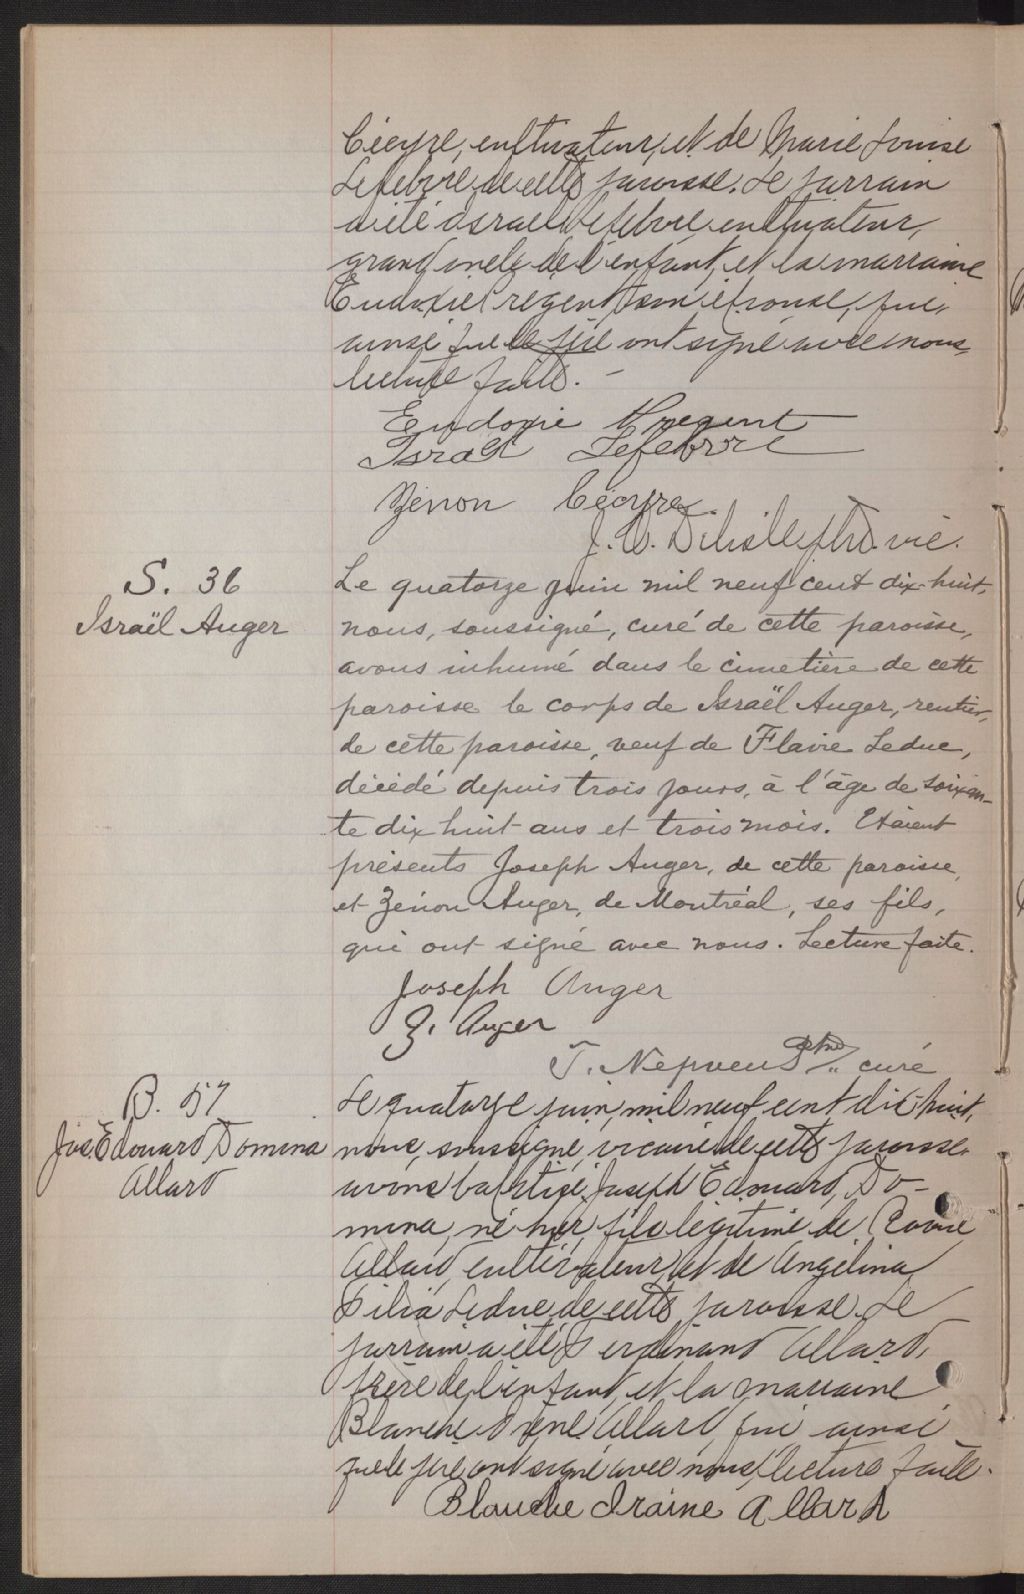 Cécyre, cultivateur, et de Marie Louise
Lefebvre de cette paroisse. Le parrain
a été Israel Lefebvre cultivateur,
grand oncle de l'enfant, et la marraine
Eudoxie Prégent son épouse, qui,
ainsi que le père ont signé avec nous,
lecture faite. -
Eudoxie Pregent
Israel Lefebvre
Zénon Cécyre.
J. vic.
S. 36
Israël Auger
Le quatorze juin mil neuf cent dix-huit,
nous, soussigné, curé de cette paroisse,
avons inhumé dans le cimetière de cette
paroisse le corps de Israël Auger, rentier,
de cette paroisse, veuf de Flavie Leduc,
décédé depuis trois jours, à l'âge de soixan-
te dix huit ans et trois mois. Etaient
présents Joseph Auger, de cette paroisse,
et Zénon Auger, de Montréal, ses fils,
qui ont signé avec nous. Lecture faite.
Joseph Auger
Z. Auger
T. Nepveu Ptre curé
B. 57
Jos. Edouard Domina
Allard
Le quatorze juin, mil neuf cent dix-huit,
nous, soussigné, vicaire de cette paroisse
avons baptisé Joseph Edouard, Do-
mina, né hier, fils légitime de
Allard, cultivateur, et de Angélina
Délia Leduc de cette paroisse. Le
parrain a été Ferdinand Allard,
frère de l'enfant, et la marraine
Blanche Irène Allard, qui ainsi
que le père ont signé avec nous, lecture faite.
Blanche Iraine Allard